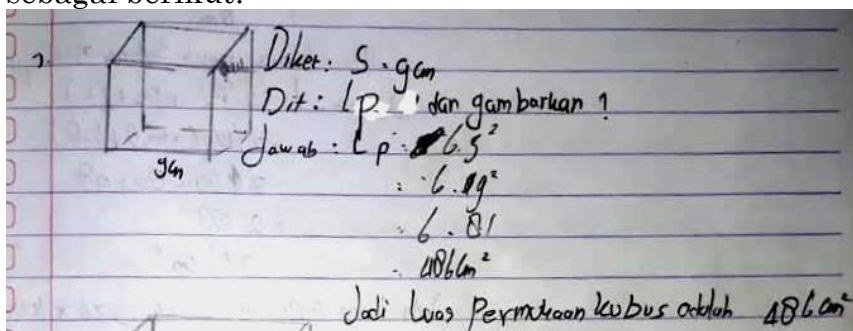 sebagai berikut:
Diket: S = 9cm
Dit: Lp dan gambarkan ?
Jawab : Lp = 6.s²
= 6.9²
= 6.81
= 486cm²
9cm
Jadi luas Permukaan kubus adalah 486 cm²